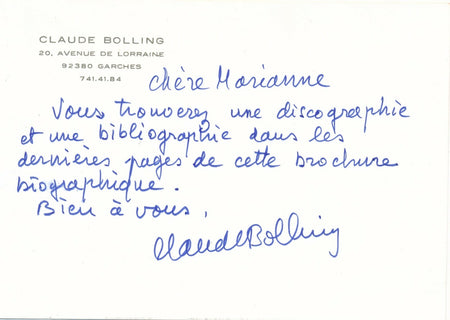 CLAUDE BOLLING
20, AVENUE DE LORRAINE
92380 GARCHES
741.41.84
Chère Marianne
Vous trouverez une discographie
et une bibliographie dans les
dernières pages de cette brochure
biographique.
Bien à vous,
Claude Bolling